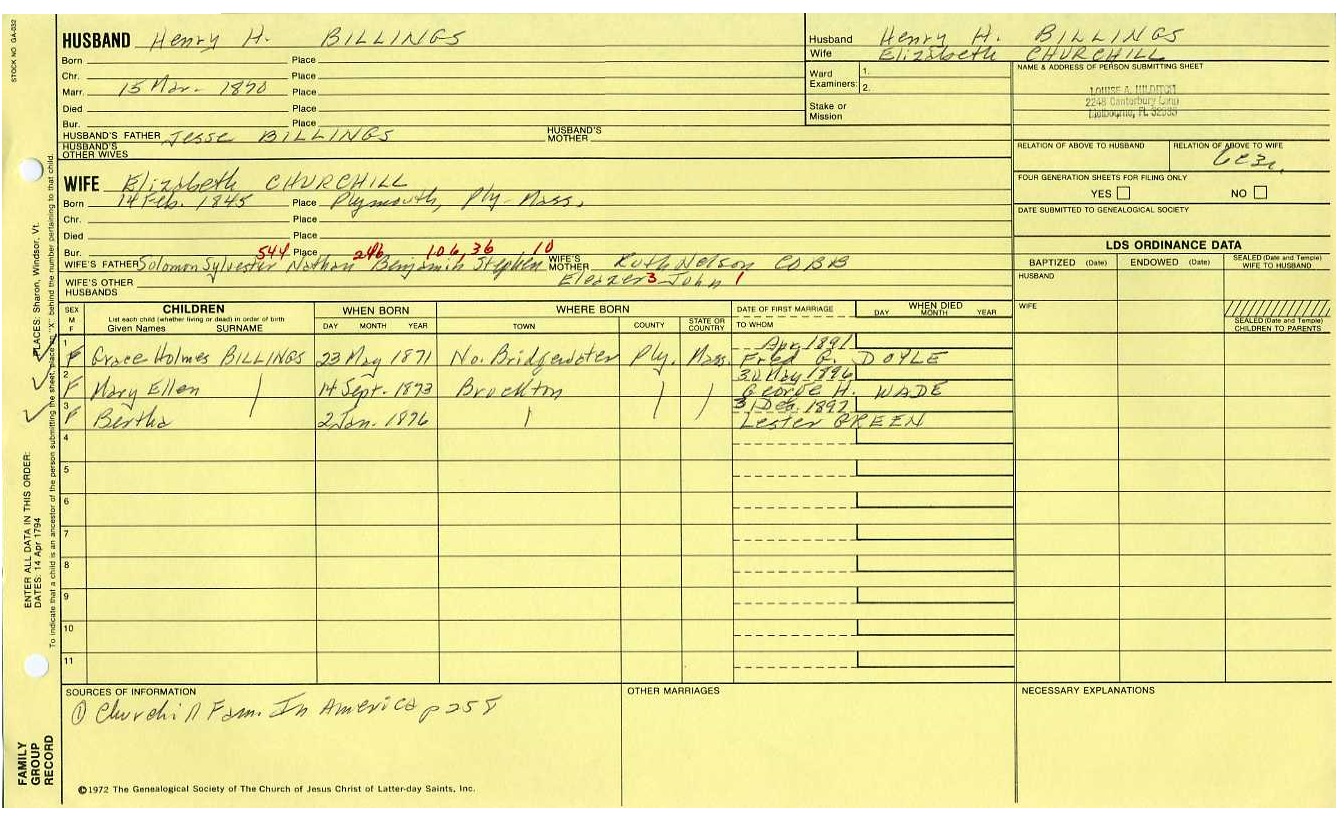 STOCK NO. GA-032
HUSBAND Henry H. BILLINGS
Born Place
Chr. Place
Marr. 15 Mar. 1870 Place
Died Place
Bur. Place
HUSBAND'S FATHER Jesse BILLINGS HUSBAND'S MOTHER
HUSBAND'S OTHER WIVES
Husband Henry H. BILLINGS
Wife Elizabeth CHURCHILL
Ward Examiners: 1.
2.
Stake or Mission
NAME & ADDRESS OF PERSON SUBMITTING SHEET
LOUISE A. HILDITCH
2248 Canterbury Lane
Melbourne, FL
RELATION OF ABOVE TO HUSBAND RELATION OF ABOVE TO WIFE
FOUR GENERATION SHEETS FOR FILING ONLY
YES NO
DATE SUBMITTED TO GENEALOGICAL SOCIETY
WIFE Elizabeth CHURCHILL
Born 14 Feb. 1845 Place Plymouth, Ply- Mass.
Chr. Place
Died Place
Bur. 544 Place 246 106, 36 10
WIFE'S FATHER Solomon Sylvester Nathan Benjamin Stephen WIFE'S MOTHER Ruth Nelson COBB
WIFE'S OTHER HUSBANDS Eleazer 3 John 1
LDS ORDINANCE DATA
BAPTIZED (Date) ENDOWED (Date) SEALED (Date and Temple) WIFE TO HUSBAND
HUSBAND
WIFE
SEALED (Date and Temple) CHILDREN TO PARENTS
SEX M F CHILDREN List each child (whether living or dead) in order of birth Given Names SURNAME WHEN BORN DAY MONTH YEAR WHERE BORN TOWN COUNTY STATE OR COUNTRY DATE OF FIRST MARRIAGE TO WHOM WHEN DIED DAY MONTH YEAR
1 F Grace Holmes BILLINGS 23 May 1871 No. Bridgewater Ply. Mass. Apr 1891 Fred G. DOYLE
2 F Mary Ellen 14 Sept. 1873 Brockton 30 May 1896 George H. WADE
3 F Bertha 2 Jan. 1876 31 Dec. 1897 Lester GREEN
4
5
6
7
8
9
10
11
SOURCES OF INFORMATION
① Churchill Fam. In America p 258
OTHER MARRIAGES
NECESSARY EXPLANATIONS
©1972 The Genealogical Society of The Church of Jesus Christ of Latter-day Saints, Inc.
FAMILY GROUP RECORD
ENTER ALL DATA IN THIS ORDER:
DATES: 14 Apr 1794 PLACES: Sharon, Windsor, Vt.
To indicate that a child is an ancestor of the person submitting the sheet, place an "X" behind the number pertaining to that child.